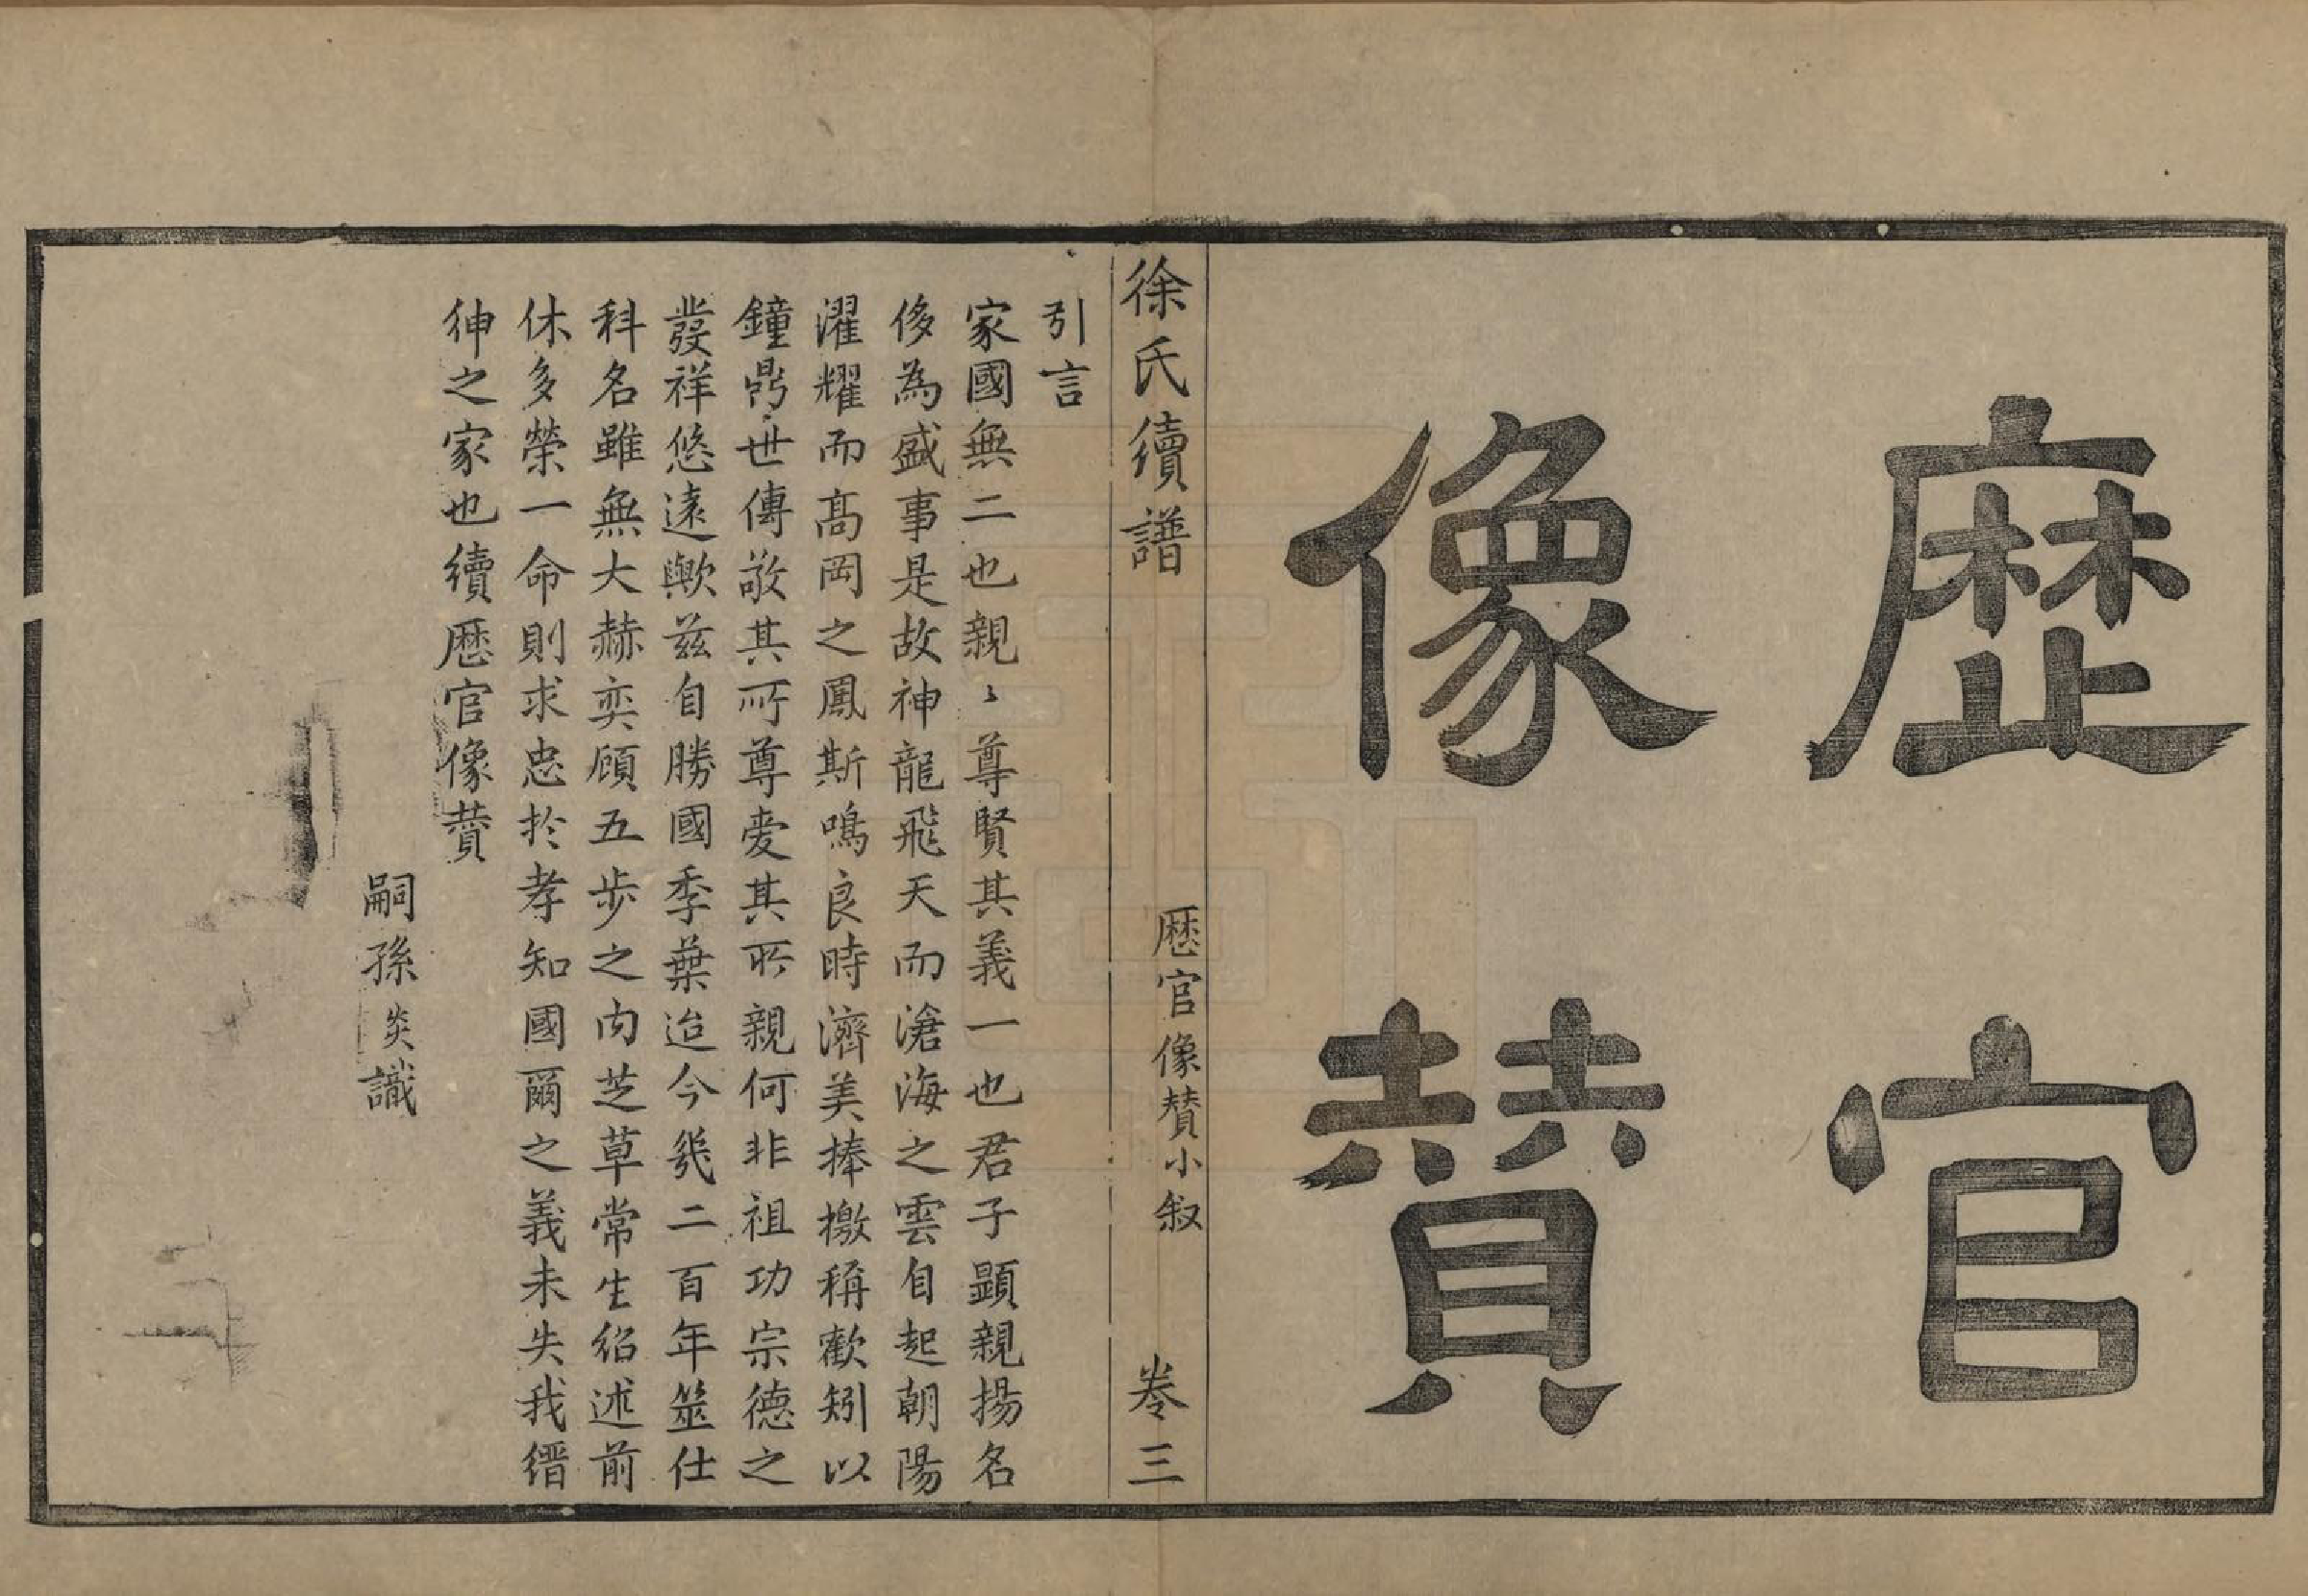 歷官
像贊
徐氏續譜
歷官像贊小叙
卷三
引言
家國無二也親〻尊賢其義一也君子顯親揚名
侈為盛事是故神龍飛天而滄海之雲自起朝陽
濯耀而髙岡之鳳斯鳴良時濟美捧檄稱歡矧以
鐘鼎世傳敬其所尊愛其所親何非祖功宗德之
發祥悠遠歟兹自勝國季葉迨今幾二百年筮仕
科名雖無大赫奕顧五步之内芝草常生紹述前
休多榮一命則求忠於孝知國爾之義未失我縉
紳之家也續歷官像贊
嗣孫炎識